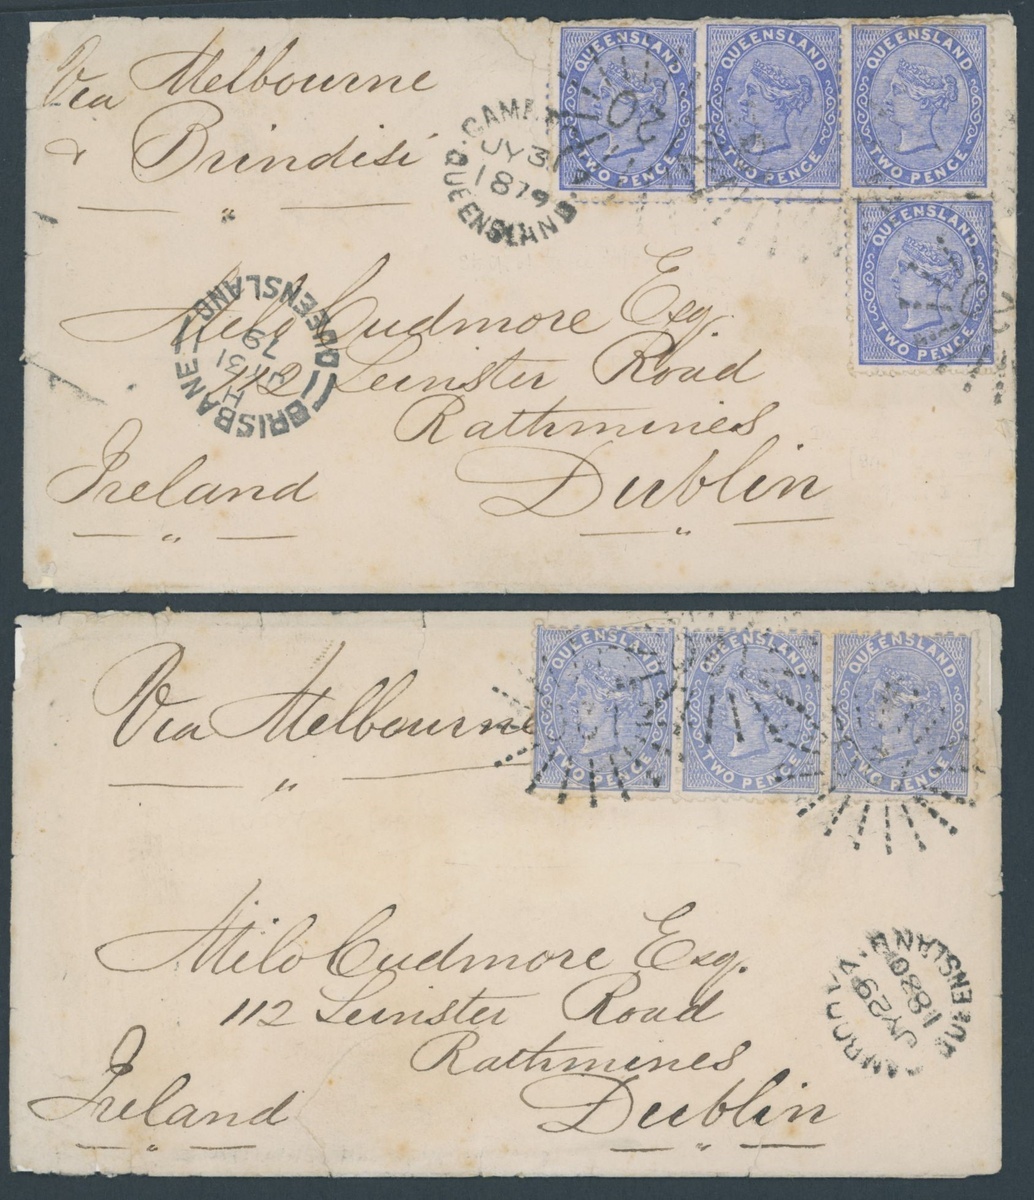 Via Melbourne
& Brindisi
QUEENSLAND
TWO PENCE
QUEENSLAND
TWO PENCE
QUEENSLAND
TWO PENCE
QUEENSLAND
TWO PENCE
20
JY 31
1879
QUEENSLAND
BRISBANE
QUEENSLAND
H
31
79
Milo Cudmore Esq.
112 Leinster Road
Rathmines
Dublin
Ireland
Via Melbourne
QUEENSLAND
TWO PENCE
QUEENSLAND
TWO PENCE
QUEENSLAND
TWO PENCE
JY 29
1880
QUEENSLAND
Milo Cudmore Esq.
112 Leinster Road
Rathmines
Dublin
Ireland